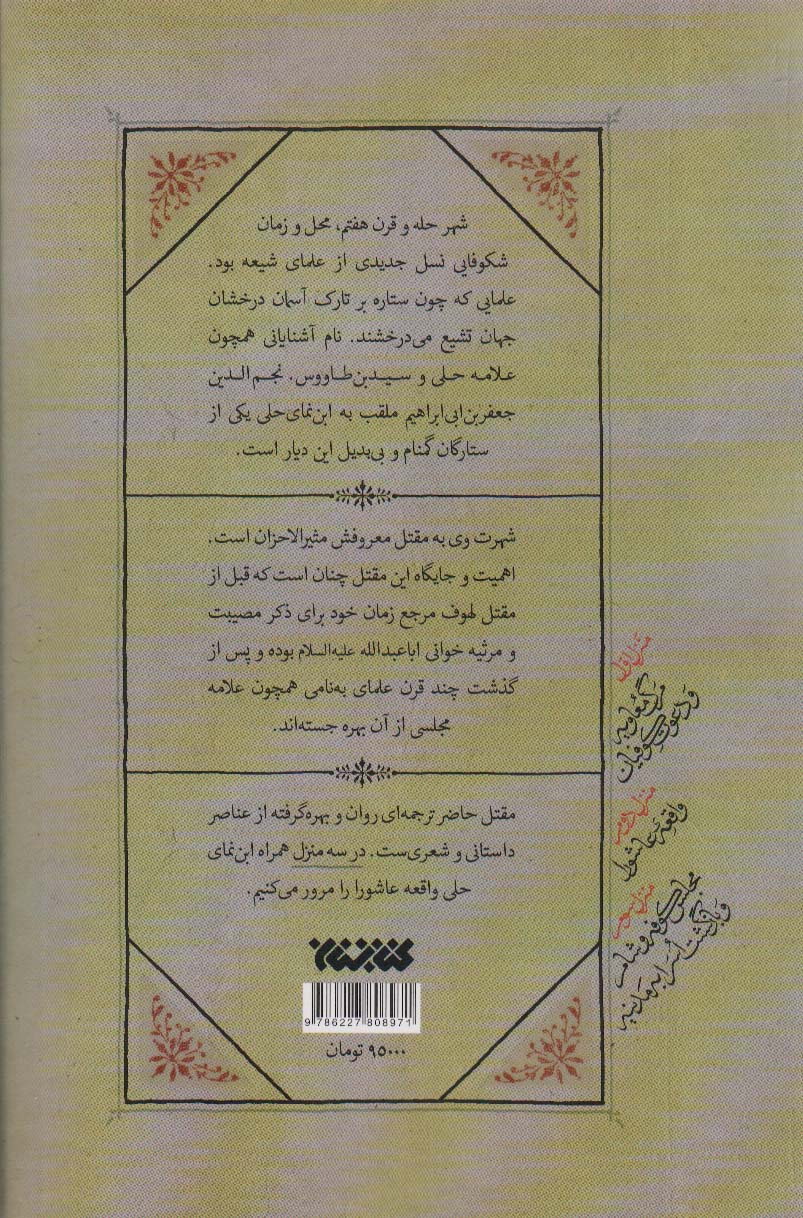 شهر حله و قرن هفتم، محل و زمان
شکوفایی نسل جدیدی از علمای شیعه بود.
علمایی که چون ستاره بر تارک آسمان درخشان
جهان تشیع می‌درخشند. نام آشنایانی همچون
علامه حلی و سیدبن‌طاووس. نجم‌الدین
جعفربن‌ابی‌ابراهیم ملقب به ابن‌نمای‌حلی یکی از
ستارگان گمنام و بی‌بدیل این دیار است.
شهرت وی به مقتل معروفش مثیرالاحزان است.
اهمیت و جایگاه این مقتل چنان است که قبل از
مقتل لهوف مرجع زمان خود برای ذکر مصیبت
و مرثیه خوانی اباعبدالله علیه‌السلام بوده و پس از
گذشت چند قرن علمای به‌نامی همچون علامه
مجلسی از آن بهره جسته‌اند.
مقتل حاضر ترجمه‌ای روان و بهره‌گرفته از عناصر
داستانی و شعری‌ست. در سه منزل همراه ابن‌نمای
حلی واقعه عاشورا را مرور می‌کنیم.
کتابستان
9 786227 808971
۹۵۰۰۰ تومان
منزل اول
مرگ معاویه
و دعوت کوفیان
منزل دوم
واقعه عاشورا
منزل سوم
مجلس کوفه و شام
و بازگشت اسرا به مدینه